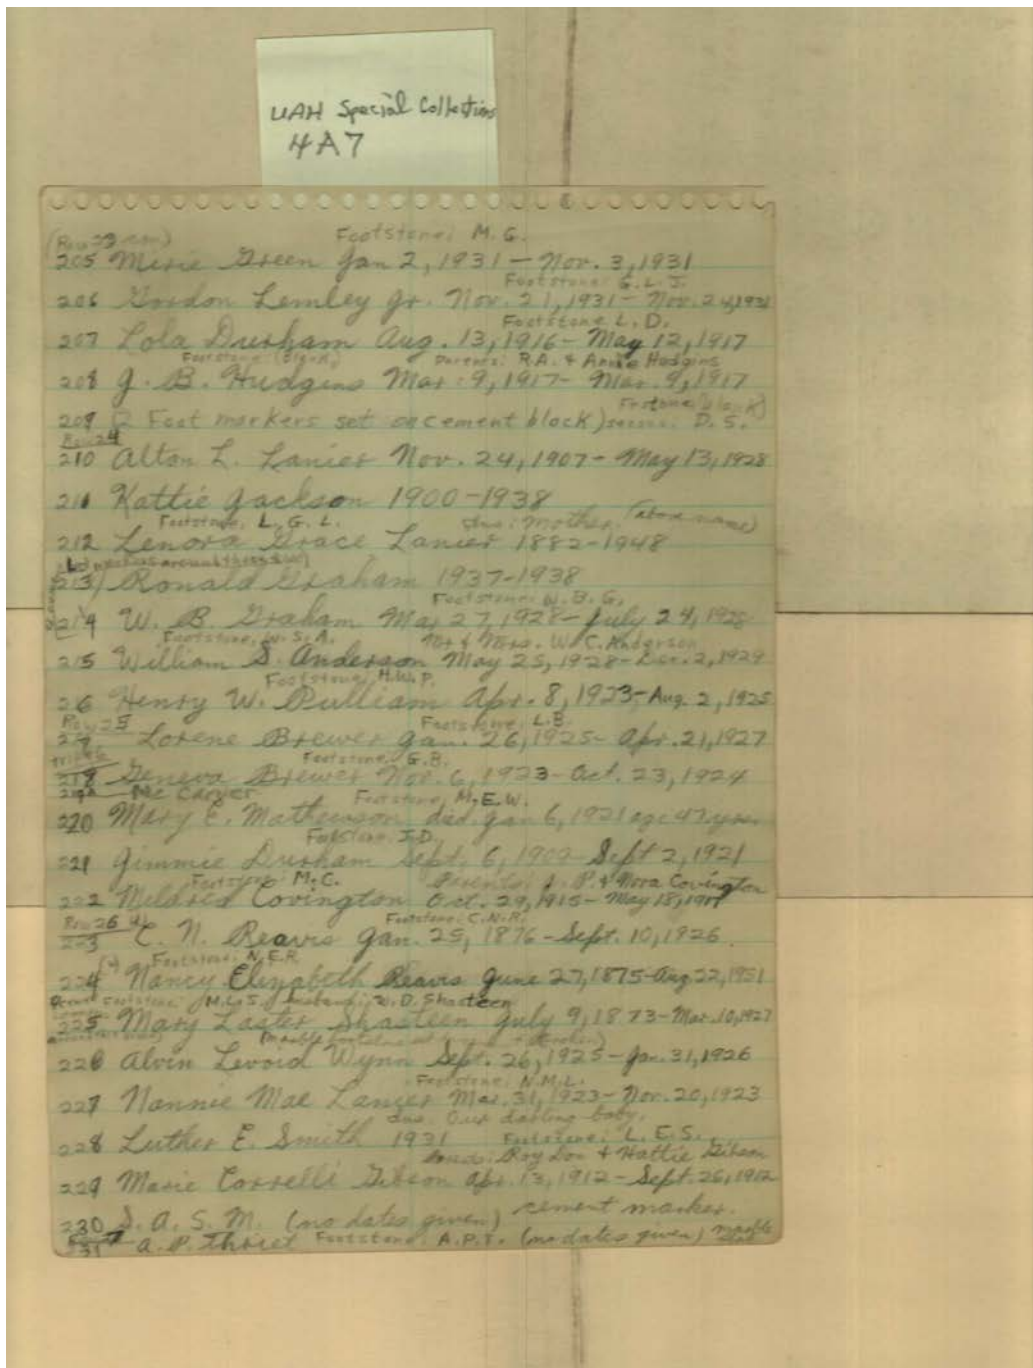 UAH Special Collections
4A7
(Row 23 con)
Footstone: M. G.
205 Merie Green Jan 2, 1931 - Nov. 3, 1931
Footstone: G. L. J.
206 Gordon Lemley Jr. Nov. 21, 1931 - Nov. 24, 1931
Footstone L. D.
207 Lola Durham Aug. 13, 1916 - May 12, 1917
Footstone: (Blank) Parents: R.A. & Annie Hudgins
208 J. B. Hudgins Mar. 9, 1917 - Mar. 9, 1917
Footstone (blank)
209 (2 Foot markers set on cement block) D. S.
Row 24
210 Alton L. Lanier Nov. 24, 1907 - May 13, 1928
211 Kattie Jackson 1900-1938
Footstone, L. G. L. Ins: Mother. (above name)
212 Lenora Grace Lanier 1882-1948
213 Ronald Graham 1937-1938
Footstone: W. B. G.
214 W. B. Graham Mar 27, 1928 - July 24, 1928
Footstone, W. S. A. Mr & Mrs. W. C. Anderson
215 William S. Anderson May 25, 1928 - Dec. 2, 1929
Footstone; H.W.P.
216 Henry W. Pulliam Apr. 8, 1923 - Aug. 2, 1925
Row 25 Footstone; L.B.
217 Lorene Brewer Jan. 26, 1925 - Apr. 21, 1927
Footstone: G.B.
218 Geneva Brewer Nov. 6, 1923 - Oct. 23, 1924
219 Mc Carver
Footstone; M. E. W.
220 Mary E. Mathewson, died Jan 6, 1921 age 47 yrs.
Footstone: J.D.
221 Jimmie Durham Sept. 6, 1900 - Sept 2, 1921
Footstone: M. C. Parents: J. P. & Nora Covington
222 Mildred Covington Oct. 29, 1915 - May 18,
Row 26 Footstone: C.N.R.
223 C. N. Reavis Jan. 25, 1876 - Sept. 10, 1926.
Footstone: N.E.R
224 Nancy Elizabeth Reavis June 27, 1875 - Aug 22, 1951
Footstone: M.L.S. husband: W. D. Shasteen
225 Mary Laster Shasteen July 9, 1873 - Mar. 10, 1927
226 Alvin Levoid Wynn Sept. 26, 1925 - Jan. 31, 1926
Footstone: N.M.L.
227 Nannie Mae Lanier Mar. 31, 1923 - Nov. 20, 1923
ins. Our darling baby.
228 Luther E. Smith 1931 Footstone: L. E. S.
Roy Lon & Hattie Gibson
229 Marie Correlli Gibson Apr. 13, 1912 - Sept. 26, 1912
230 S. A. S. M. (no dates given) cement marker.
231 A. P. Thriet Footstone: A.P.T. (no dates given) marble